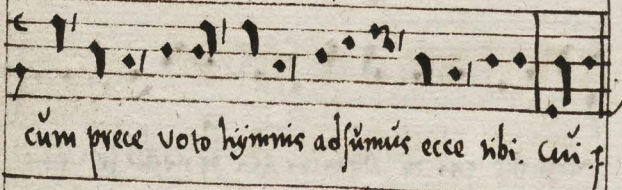 cum prece voto hymnis adsumus ecce tibi. Cui .p